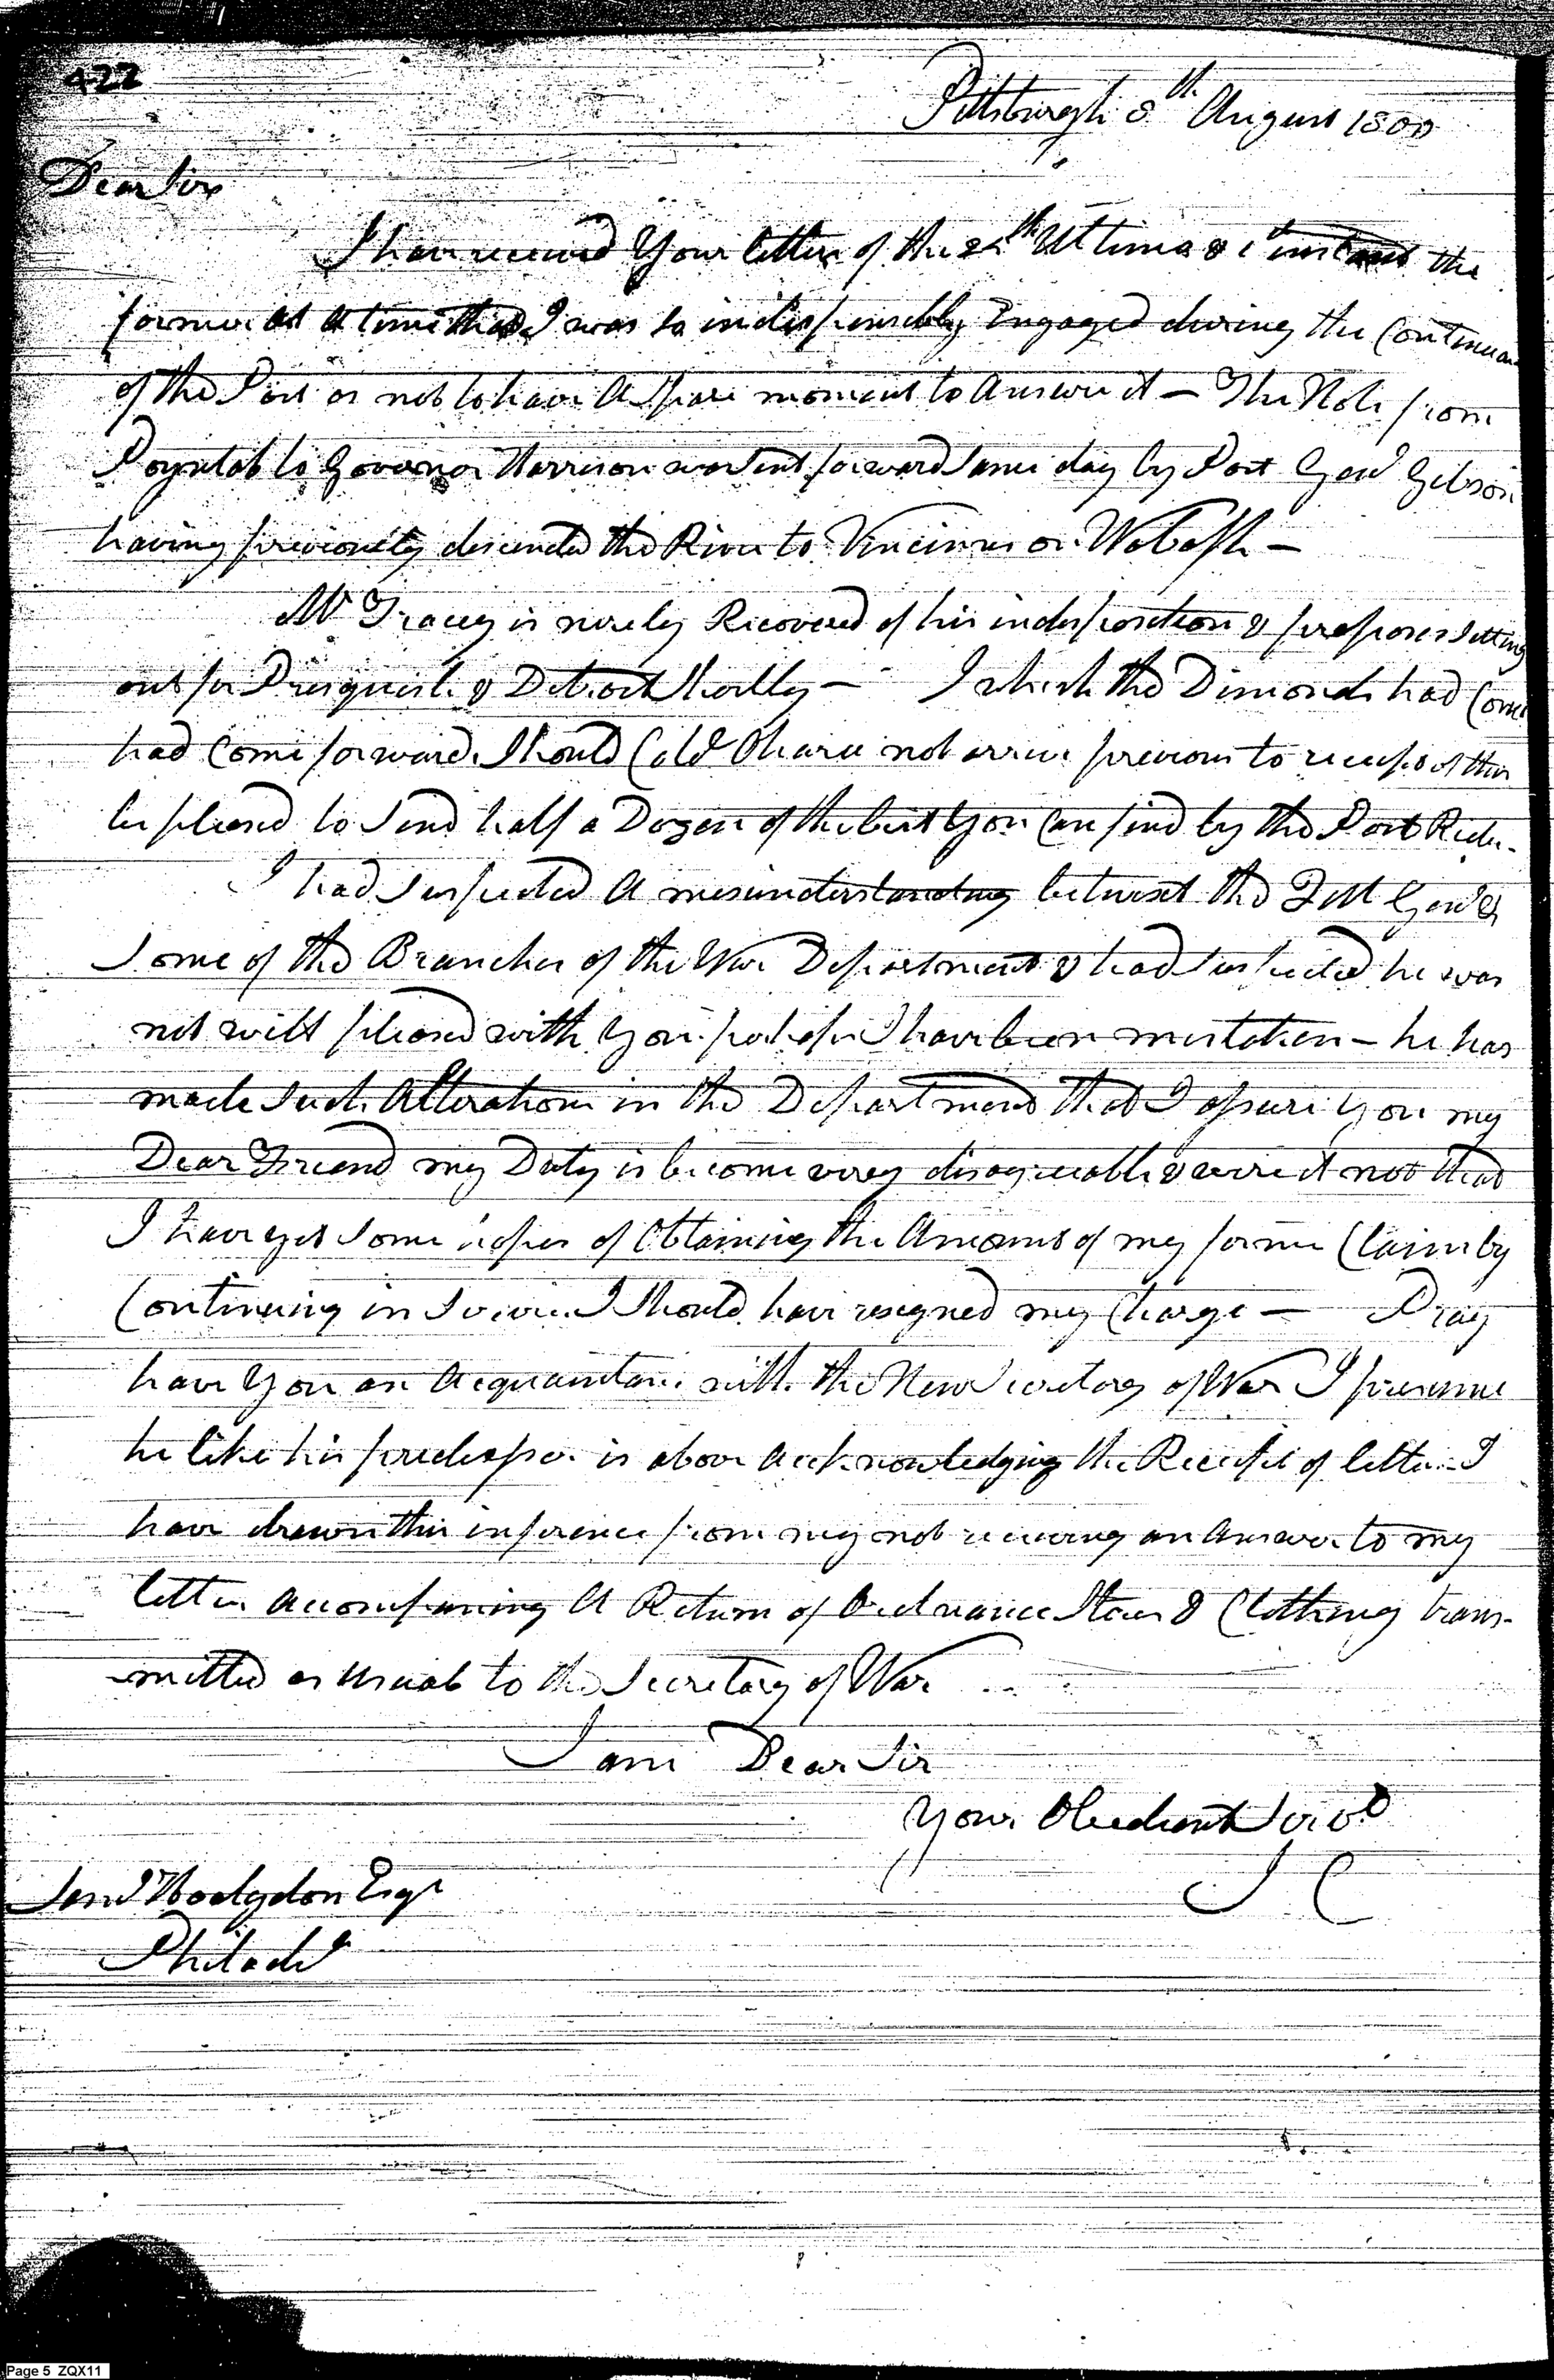 422
Pittsburgh 8th August 1800
Dear Sir
I have received Your letter of the 2 th Ultimo & 1st instant the
former at a time that I was so indispensibly Engaged during the Continuan
of the Post as not to have a Spare moment to answer it — The Note from
Poyntol to Governor Harrison was sent forward same day by Post Genl Gibson
having previously descended the River to Vincinnes on Wabash —
Mr Tracey is nearly Recovered of his indisposition & proposes setting
out for Presquisle & Detroit Shortly — I wish the Dimonds had Come
had Come forward. Should Cold Ohara not arrive previous to receipt of this
be pleased to Send half a Dozen of the best You Can find by the Post Rider.
I had suspected a misunderstanding betwixt the Q M Genl &
Some of the Branches of the War Department & had suspected he was
not well pleased with You. perhaps I have been mistaken — he has
made Such Alterations in the Department that I assure You my
Dear Friend my Duty is become very disagreeable & were it not that
I have yet some hopes of Obtaining the Amount of my former Claim by
Continuing in Service I Should have resigned my Charge — Pray
have You an Acquaintance with the New Secretary of War I presume
he like his predecessor is above acknowledging the Receipt of letters I
have drawn this inference from my not receiving an answer to my
letter accompaning A Return of Ordnance Stores & Clothing trans-
mitted as usual to the Secretary of War
I am Dear Sir
Your Obedient Servt
I C
Saml Hodgdon Esqr
Philade
Page 5 ZQX11